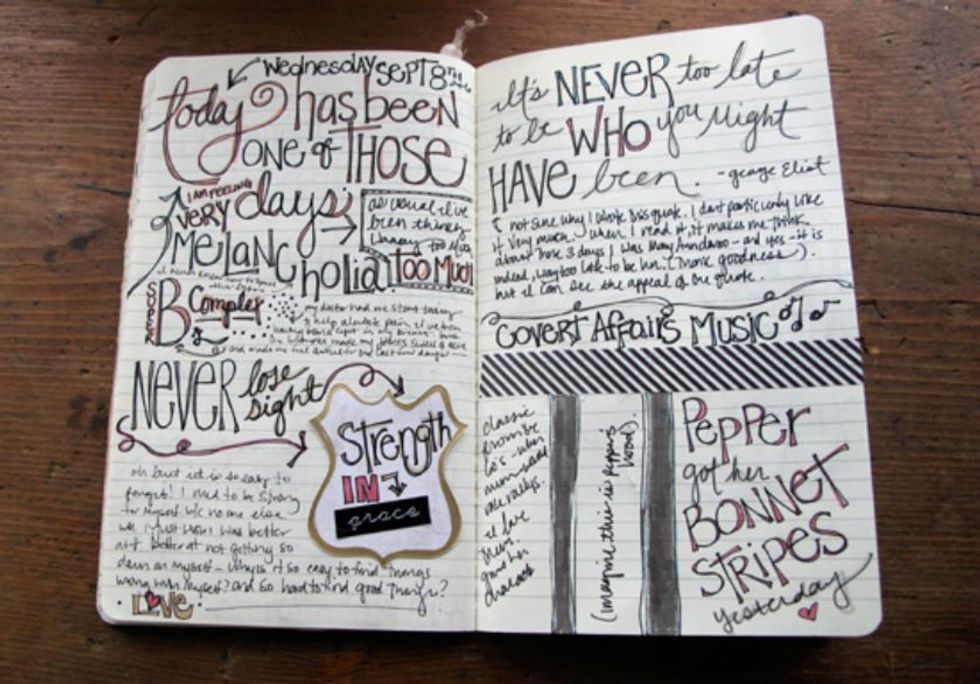 Wednesday SEPT 8TH
today has been
ONE of THOSE
I AM FEELING
VERY days;
MELANC
holia
as usual i've
been thinking
WAAAY too MUCH
TOO MUCH
SUPER
B Complex
my doctor had me start taking
to help alleviate pain i've been
having
and made me feel awful the last few days
NEVER lose
sight
Strength
IN
grace
oh but it is so easy to
forget! I need to be strong
for myself b/c no one else
will. I just wish I was better
at it. better at not getting so
down on myself - why is it so easy to find things
wrong with myself? and so hard to find good things?
LOVE
It's NEVER too late
to be WHO you Might
HAVE been. - george Eliot
not sure why I wrote this quote. I don't particularly like
it very much. when I read it, it makes me think
about those 3 days I was - and yes - it is
indeed, way too late to be him. (thank goodness).
but i can see the appeal of the quote.
COVERT AFFAIRS MUSIC
classic
from the
60's - when
mini-
were
i love
them.
and her
dresses
(imagine this is pepper's
hood)
PePPER
got her
BONNET
STRIPES
yesterday